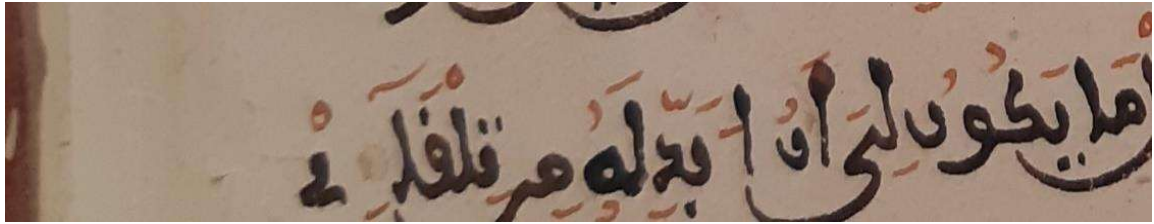 ما يكون لي أن أبدله من تلقاء